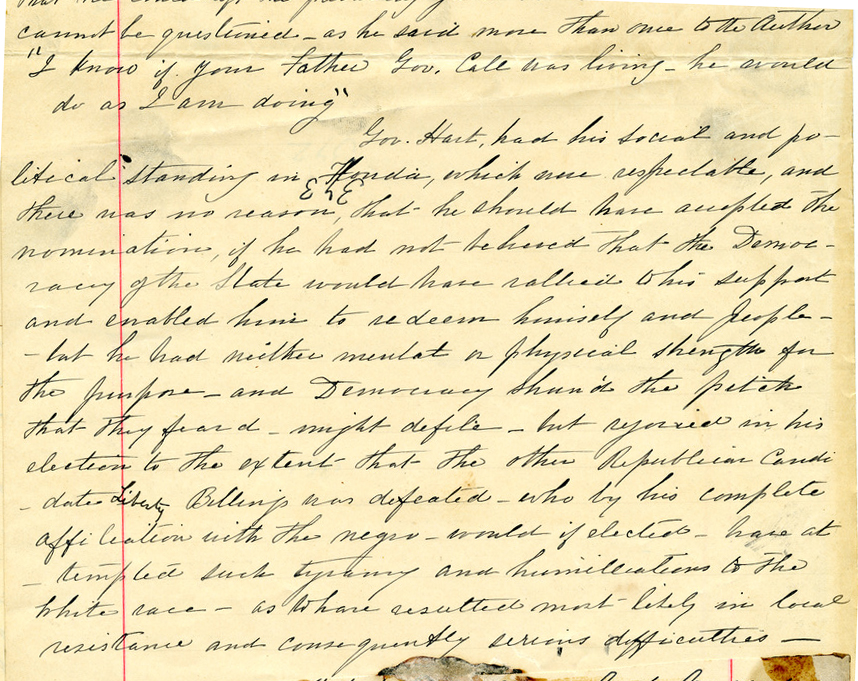 cannot be questioned - as he said more than once to the Author
"I know if your Father Gov. Call was living - he would
do as I am doing"
Gov. Hart, had his social and po-
litical standing in Florida, which were respectable, and
there was no reason, that he should have accepted the
nomination, if he had not believed that the Democ-
racy of the State would have rallied to his support
and enabled him to redeem himself and people -
- but he had neither mental or physical strength for
the purpose - and Democracy shun'd the pitch
that they feard - might defile - but rejoiced in his
election to the extent that the other Republican Candi
- date Liberty Billings was defeated - who by his complete
affiliation with the negro - would if elected - have at
- tempted such tyranny and humiliations to the
White race - as to have resulted most likely in local
resistance and consequently serious difficulties -